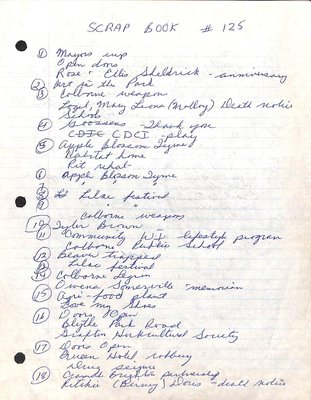 SCRAP BOOK # 125
① Mayors cup
Open doors
Rose & Ellis Sheldrick - anniversary
② Art in the Park
③ Colborne weapons
Loyd, Mary Leona (Molloy) Death notice
Schools
④ Goossens - Thank you
CDIC CDCI - play
⑤ Apple Blossom Tyme
Habitat home
Pit rehab -
⑥ Apple Blossom Tyme
7 " "
8 Lilac festival
9 " "
Colborne weapons
⑩ Tyler Brown
11 Community W.I. lifestyle program
Colborne Public School
⑫ Beaver trapped
13 Lilac festival
14 Colborne Legion
⑮ Owena Somerville - memoriam
Agri-food plant
Love my Shoes
⑯ Doors Open
Blythe Park Road
Grafton Horticultural Society
⑰ Doors Open
Queen Hotel robbery
Drug seizure
⑱ Cramahe Brighton partnership
Ritchie (Birney) Doris - death notice